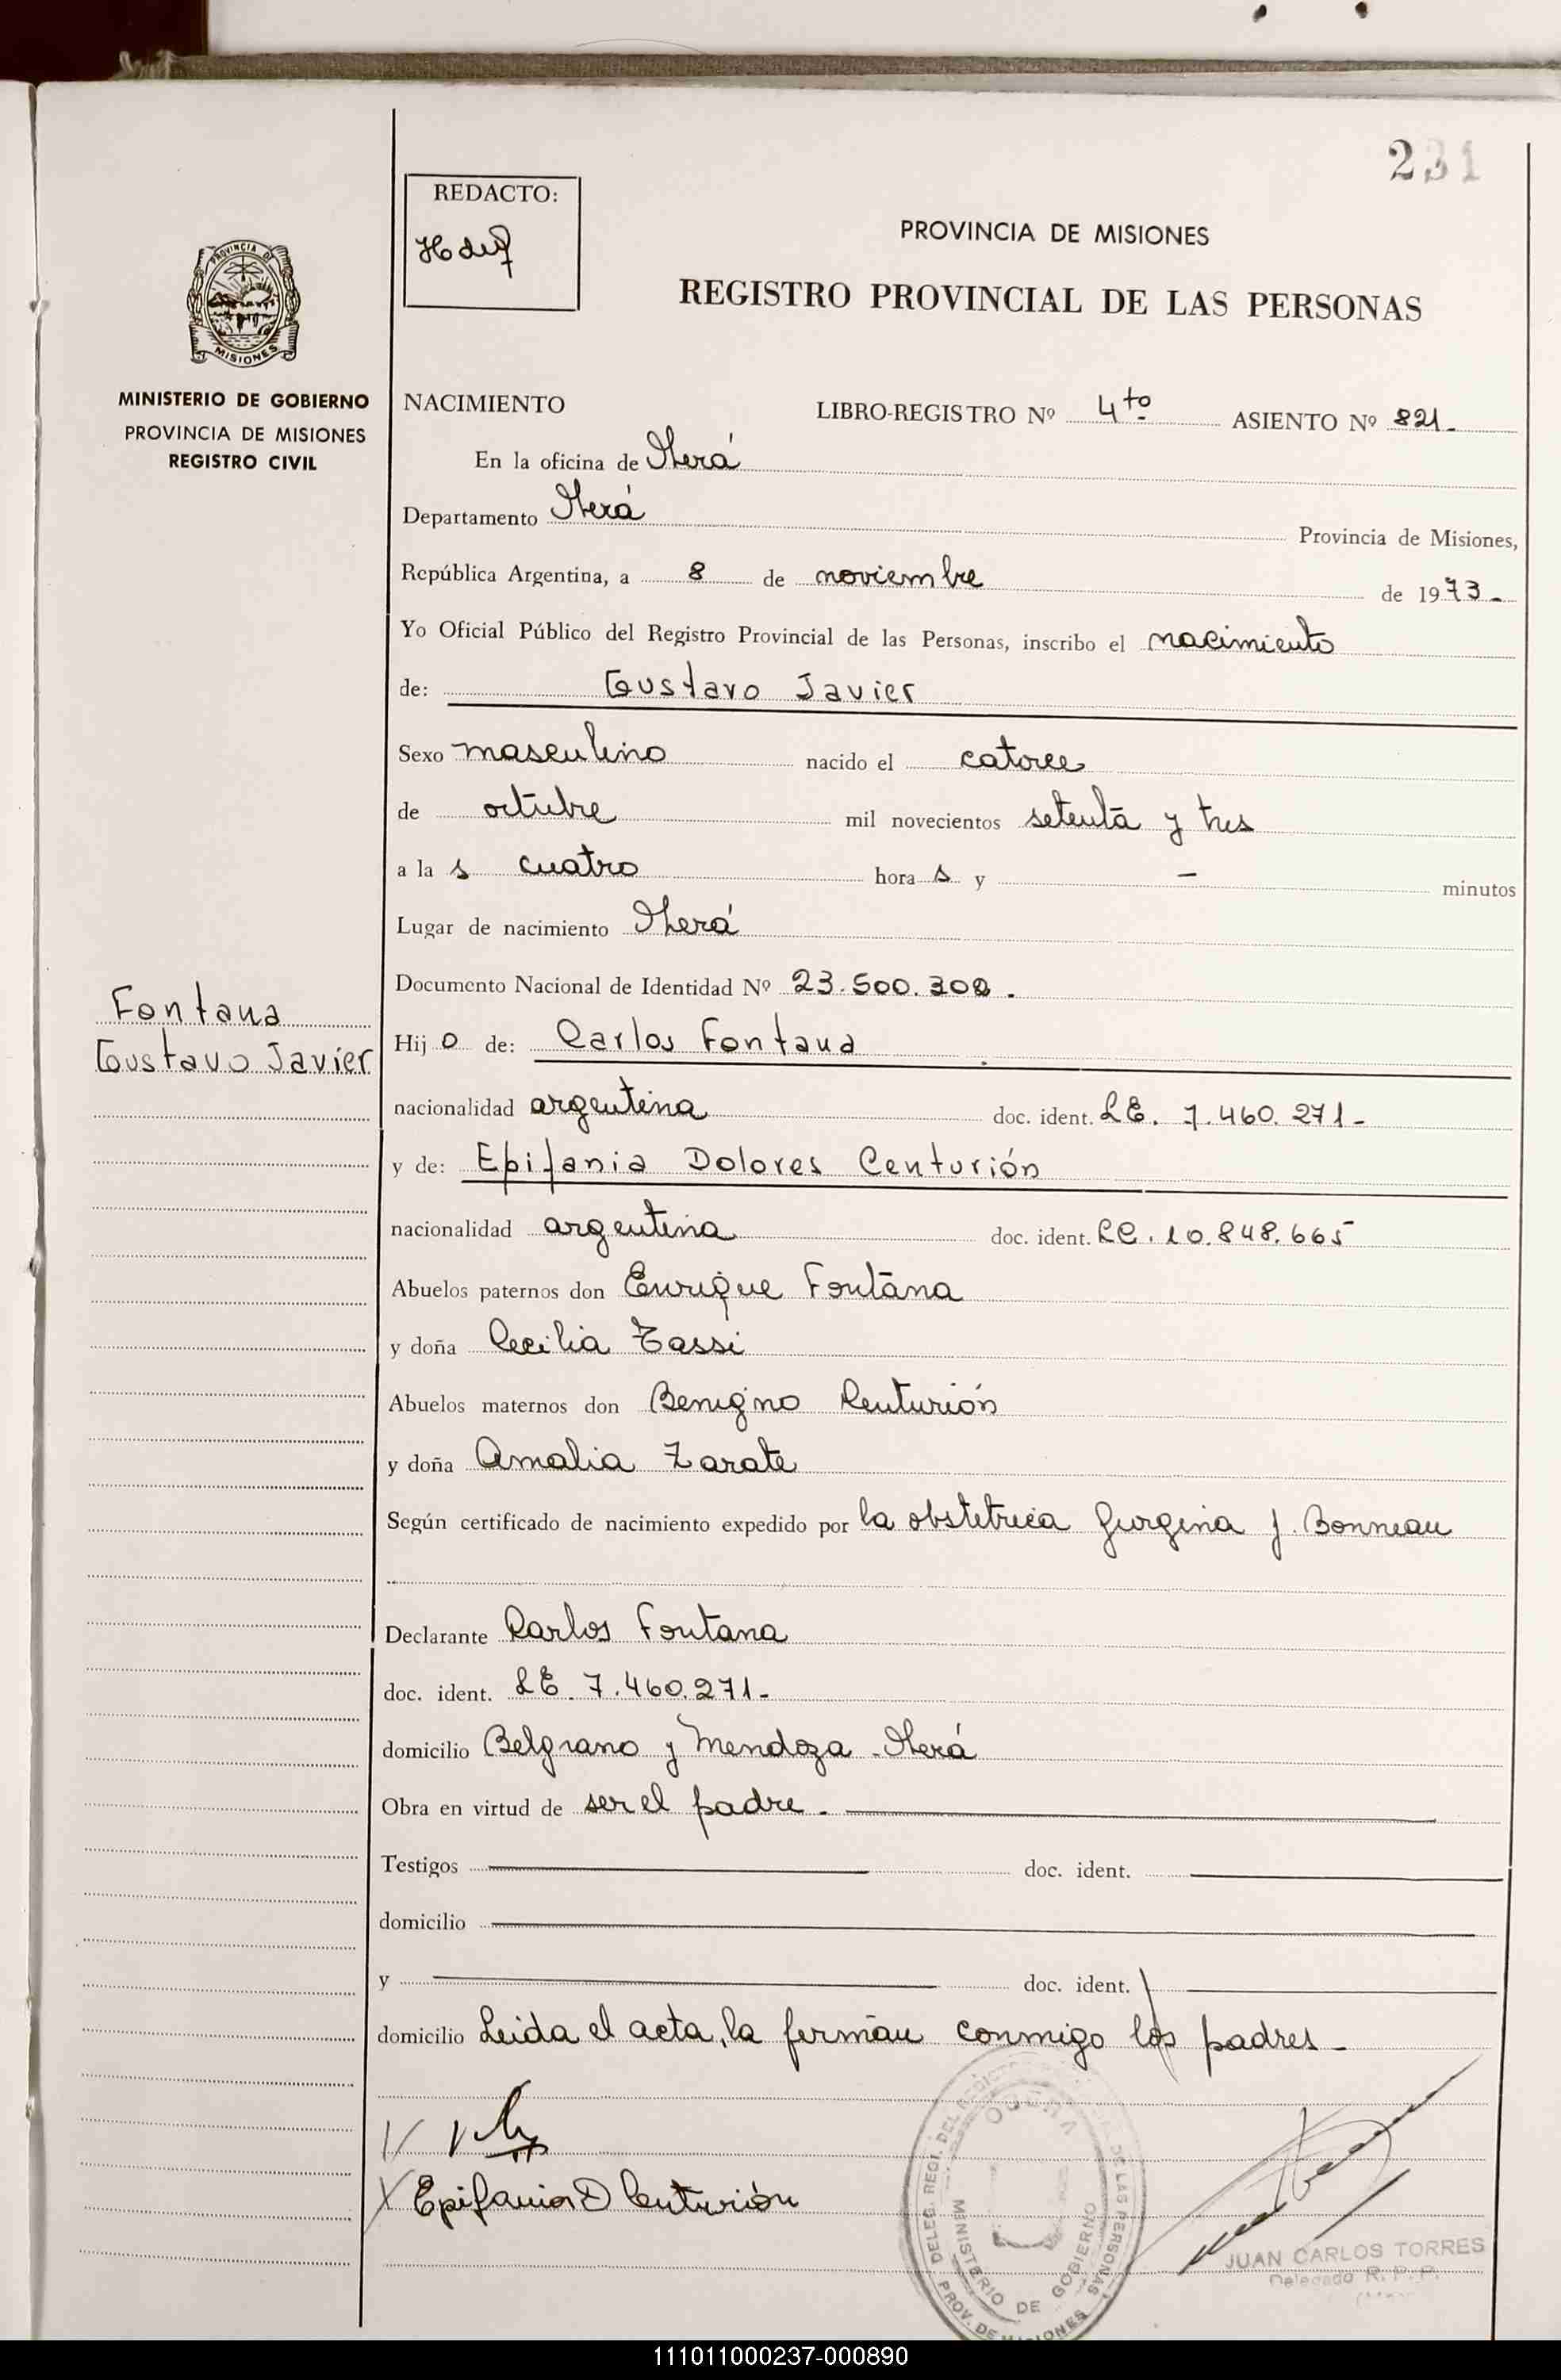 231
REDACTO:
PROVINCIA DE MISIONES
REGISTRO PROVINCIAL DE LAS PERSONAS
PROVINCIA DE
MISIONES
MINISTERIO DE GOBIERNO
PROVINCIA DE MISIONES
REGISTRO CIVIL
NACIMIENTO LIBRO-REGISTRO Nº 4to ASIENTO Nº 821.
En la oficina de Oberá
Departamento Oberá Provincia de Misiones,
República Argentina, a 8 de noviembre de 1973.
Yo Oficial Público del Registro Provincial de las Personas, inscribo el nacimiento
de: Gustavo Javier
Sexo masculino nacido el catorce
de octubre mil novecientos setenta y tres
a la s cuatro hora s y - minutos
Lugar de nacimiento Oberá
Documento Nacional de Identidad Nº 23.500.302.
Fontana
Gustavo Javier
Hij o de: Carlos Fontana
nacionalidad argentina doc. ident. LE. 7.460.271-
y de: Epifania Dolores Centurión
nacionalidad argentina doc. ident. LC. 10.848.665
Abuelos paternos don Enrique Fontana
y doña Cecilia Tassi
Abuelos maternos don Benigno Centurión
y doña Amalia Zarate
Según certificado de nacimiento expedido por la obstetrica J. Bonneau
Declarante Carlos Fontana
doc. ident. LE. 7.460.271-
domicilio Belgrano y Mendoza - Oberá
Obra en virtud de ser el padre.
Testigos doc. ident.
domicilio
y doc. ident.
domicilio Leida el acta, la firman conmigo los padres-
Epifania D Centurión
OBERA
MINISTERIO DE GOBIERNO
PROV. DE MISIONES
JUAN CARLOS TORRES
Delegado R. P. P.
111011000237-000890